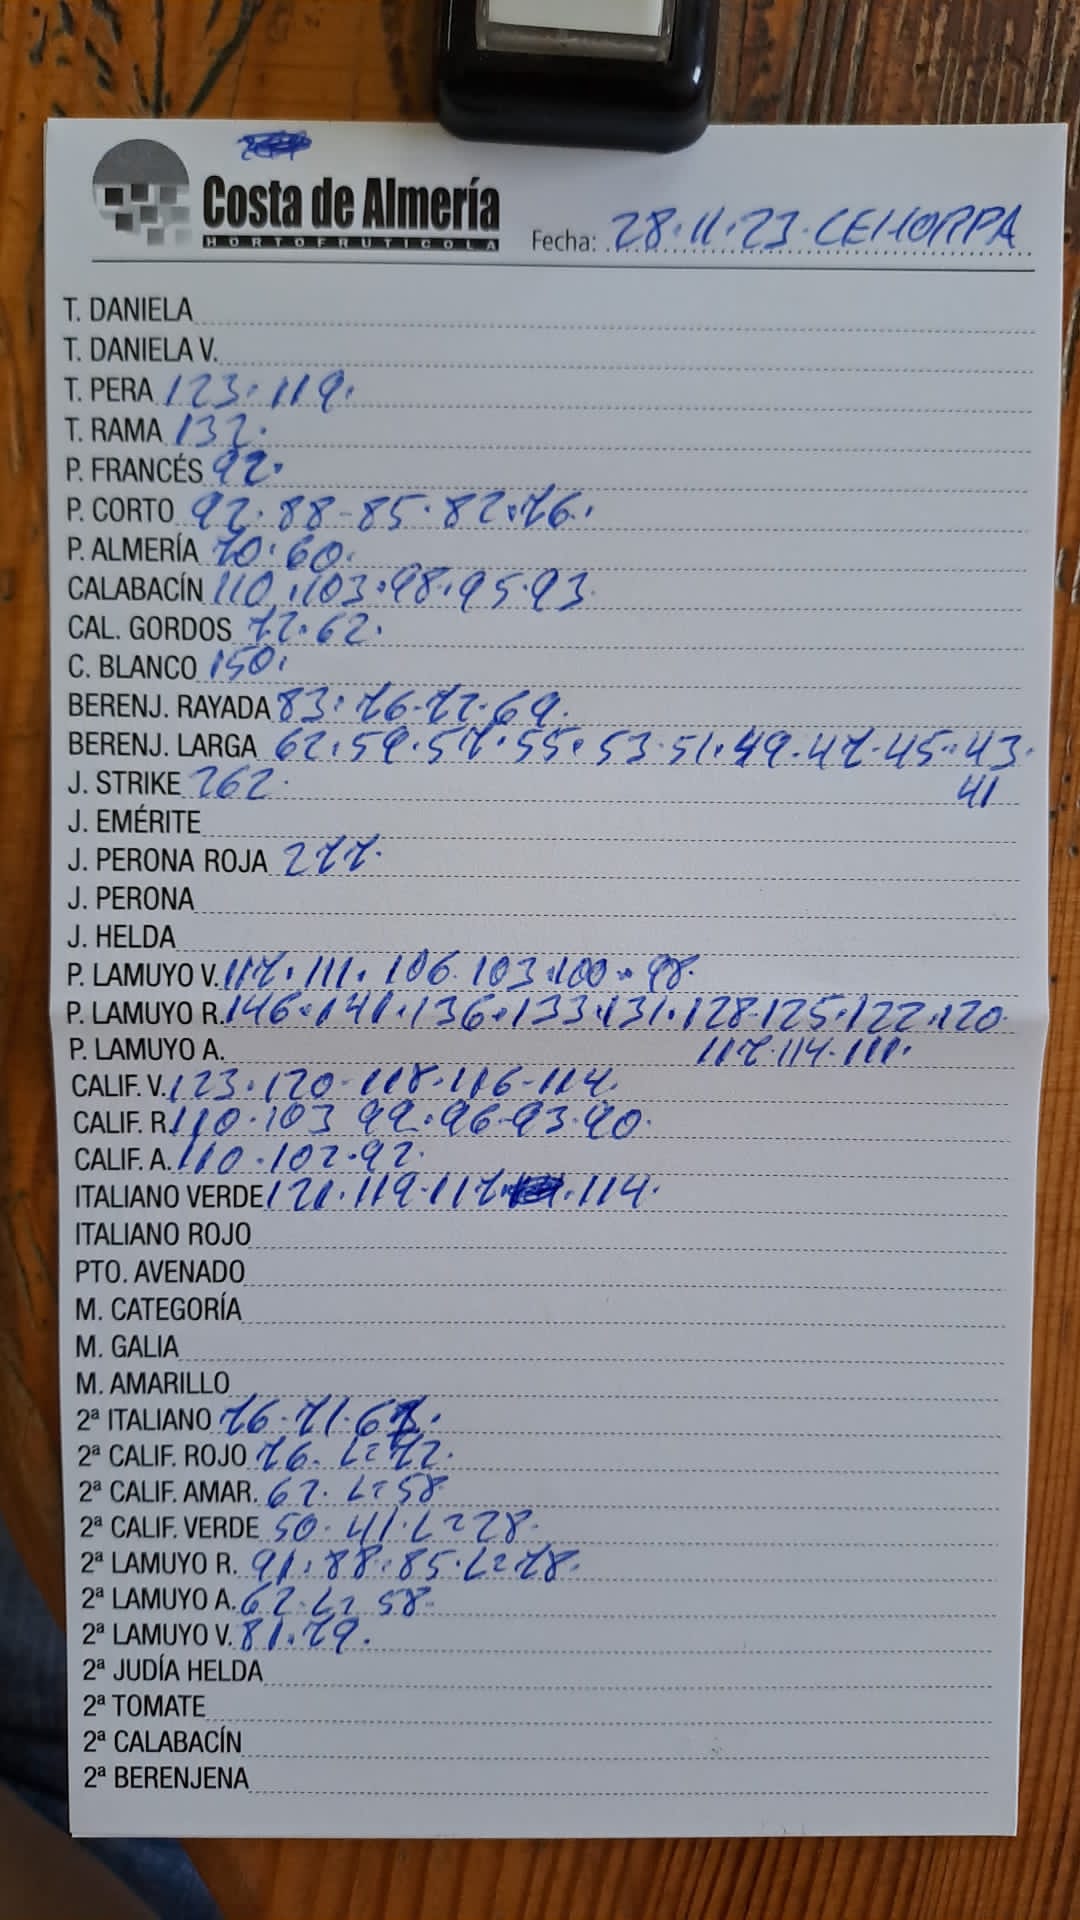 Costa de Almería
HORTOFRUTICOLA
Fecha: 28.11.23. CEHORPA
T. DANIELA
T. DANIELA V.
T. PERA 123.119.
T. RAMA 132.
P. FRANCÉS 92.
P. CORTO 92.88-85.82.76.
P. ALMERÍA 70.60.
CALABACÍN 110.103.98.95.93
CAL. GORDOS 72.62.
C. BLANCO 150.
BERENJ. RAYADA 83.76.72.69.
BERENJ. LARGA 62.59.57.55.53.51.49.47.45.43.
41
J. STRIKE 262.
J. EMÉRITE
J. PERONA ROJA 277.
J. PERONA
J. HELDA
P. LAMUYO V. 117.111.106.103.100.98.
P. LAMUYO R. 146.141.136.133.131.128-125.122.120.
117.114.111.
P. LAMUYO A.
CALIF. V. 123.120-118.116-114.
CALIF. R. 110.103 99.96-93.90.
CALIF. A. 110.102.92.
ITALIANO VERDE 121.119.117.114.
ITALIANO ROJO
PTO. AVENADO
M. CATEGORÍA
M. GALIA
M. AMARILLO
2ª ITALIANO 76.71.67.
2ª CALIF. ROJO 76. L=72.
2ª CALIF. AMAR. 62. L=58
2ª CALIF. VERDE 50.41.L=28.
2ª LAMUYO R. 91.88.85.L=78.
2ª LAMUYO A. 62.L=58.
2ª LAMUYO V. 81.79.
2ª JUDÍA HELDA
2ª TOMATE
2ª CALABACÍN
2ª BERENJENA